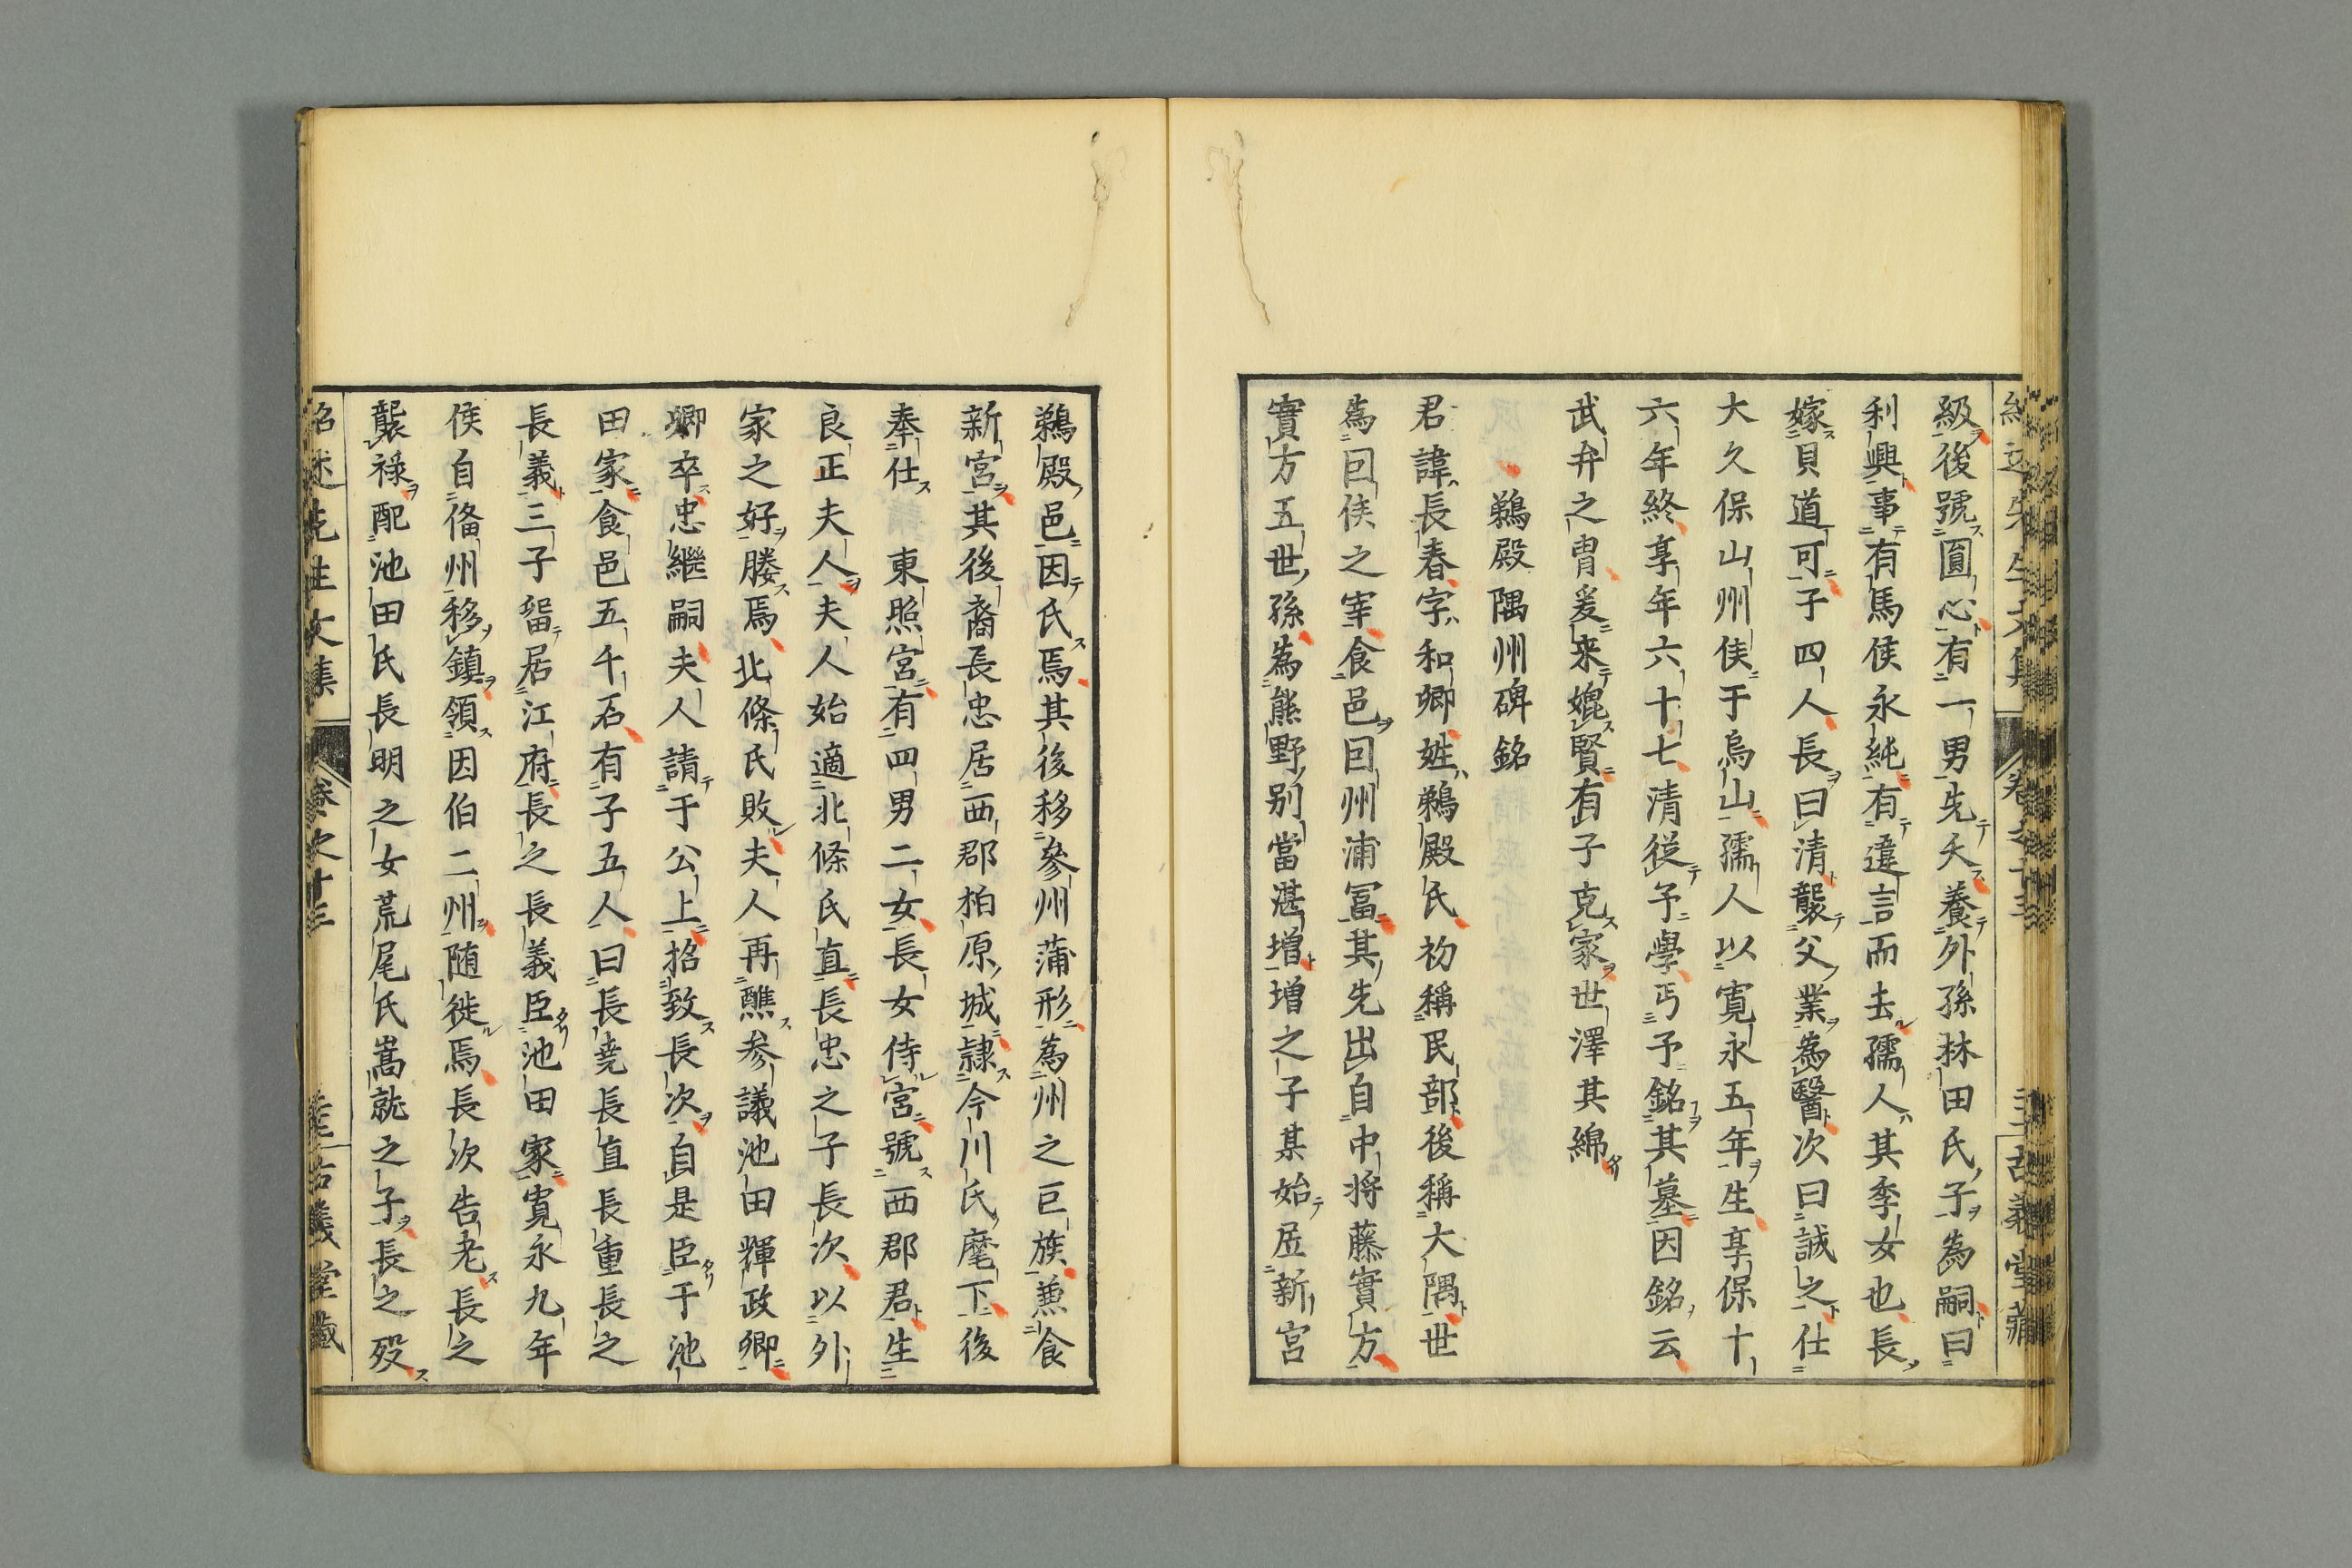 級後號圓心有一男先夭養外孫林田氏子為嗣曰
利興事有馬侯永純有違言而去孺人其季女也長
嫁貝道可子四人長曰清襲父業為醫次曰誠之仕
大久保山州侯于烏山孺人以寛永五年生享保十
六年終享年六十七清従予學丐予銘其墓因銘云
武弁之冑爰来媲賢有子克家世澤其綿
鵜殿隅州碑銘
君諱長春字和卿姓鵜殿氏初稱民部後稱大隅世
為因侯之宰食邑因州浦冨其先出自中將藤實方
實方五世孫為熊野別當湛增增之子某始居新宮
鵜殿邑因氏焉其後移參州蒲形為州之巨族兼食
新宮其後裔長忠居西郡柏原城隷今川氏麾下後
奉仕　東照宮有四男二女長女侍宮號西郡君生
良正夫人夫人始適北條氏直長忠之子長次以外
家之好媵焉北條氏敗夫人再醮參議池田輝政卿
卿卒忠繼嗣夫人請于公上招致長次自是臣于池
田家食邑五千石有子五人曰長堯長直長重長之
長義三子留居江府長之長義臣池田家寛永九年
侯自俻州移鎮領因伯二州随徙焉長次告老長之
襲禄配池田氏長明之女荒尾氏嵩就之子長之歿
紹述先生文集
卷之十三
古義堂藏